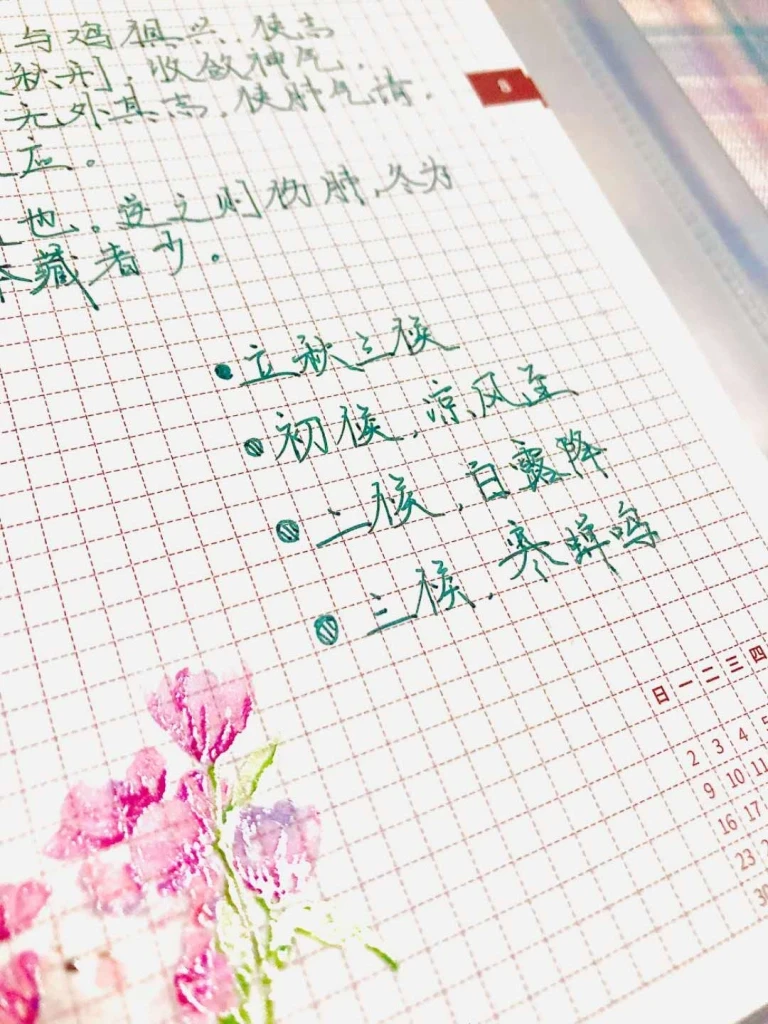 与鸡俱兴,使志
秋刑,收敛神气,
无外其志,使肺气清,
应。
也。逆之则伤肺,冬为
藏者少。
8
•立秋三候
初候,凉风至
二候,白露降
三候,寒蝉鸣
日 一 二 三 四
2 3 4 5
9 10 11
16 17
23
30